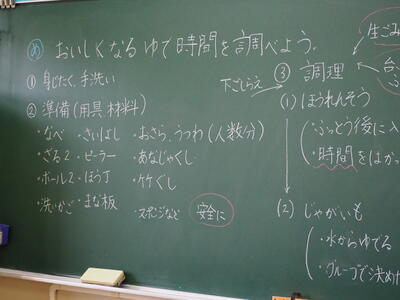 め おいしくなるゆで時間を調べよう。
① 身じたく、手洗い
② 準備(用具 材料)
・なべ ・さいばし ・おさら、うつわ(人数分)
・ざる2 ・ピーラー ・あなじゃくし
・ボール2 ・ほう丁 ・竹ぐし
・洗いかご ・まな板 ・スポンジなど 安全に
下ごしらえ
③ 調理
(1) ほうれんそう
・ふっとう後に入
・時間をはか
(2) じゃがいも
・水からゆでる
・グループで決め
生ごみ
台
ふ